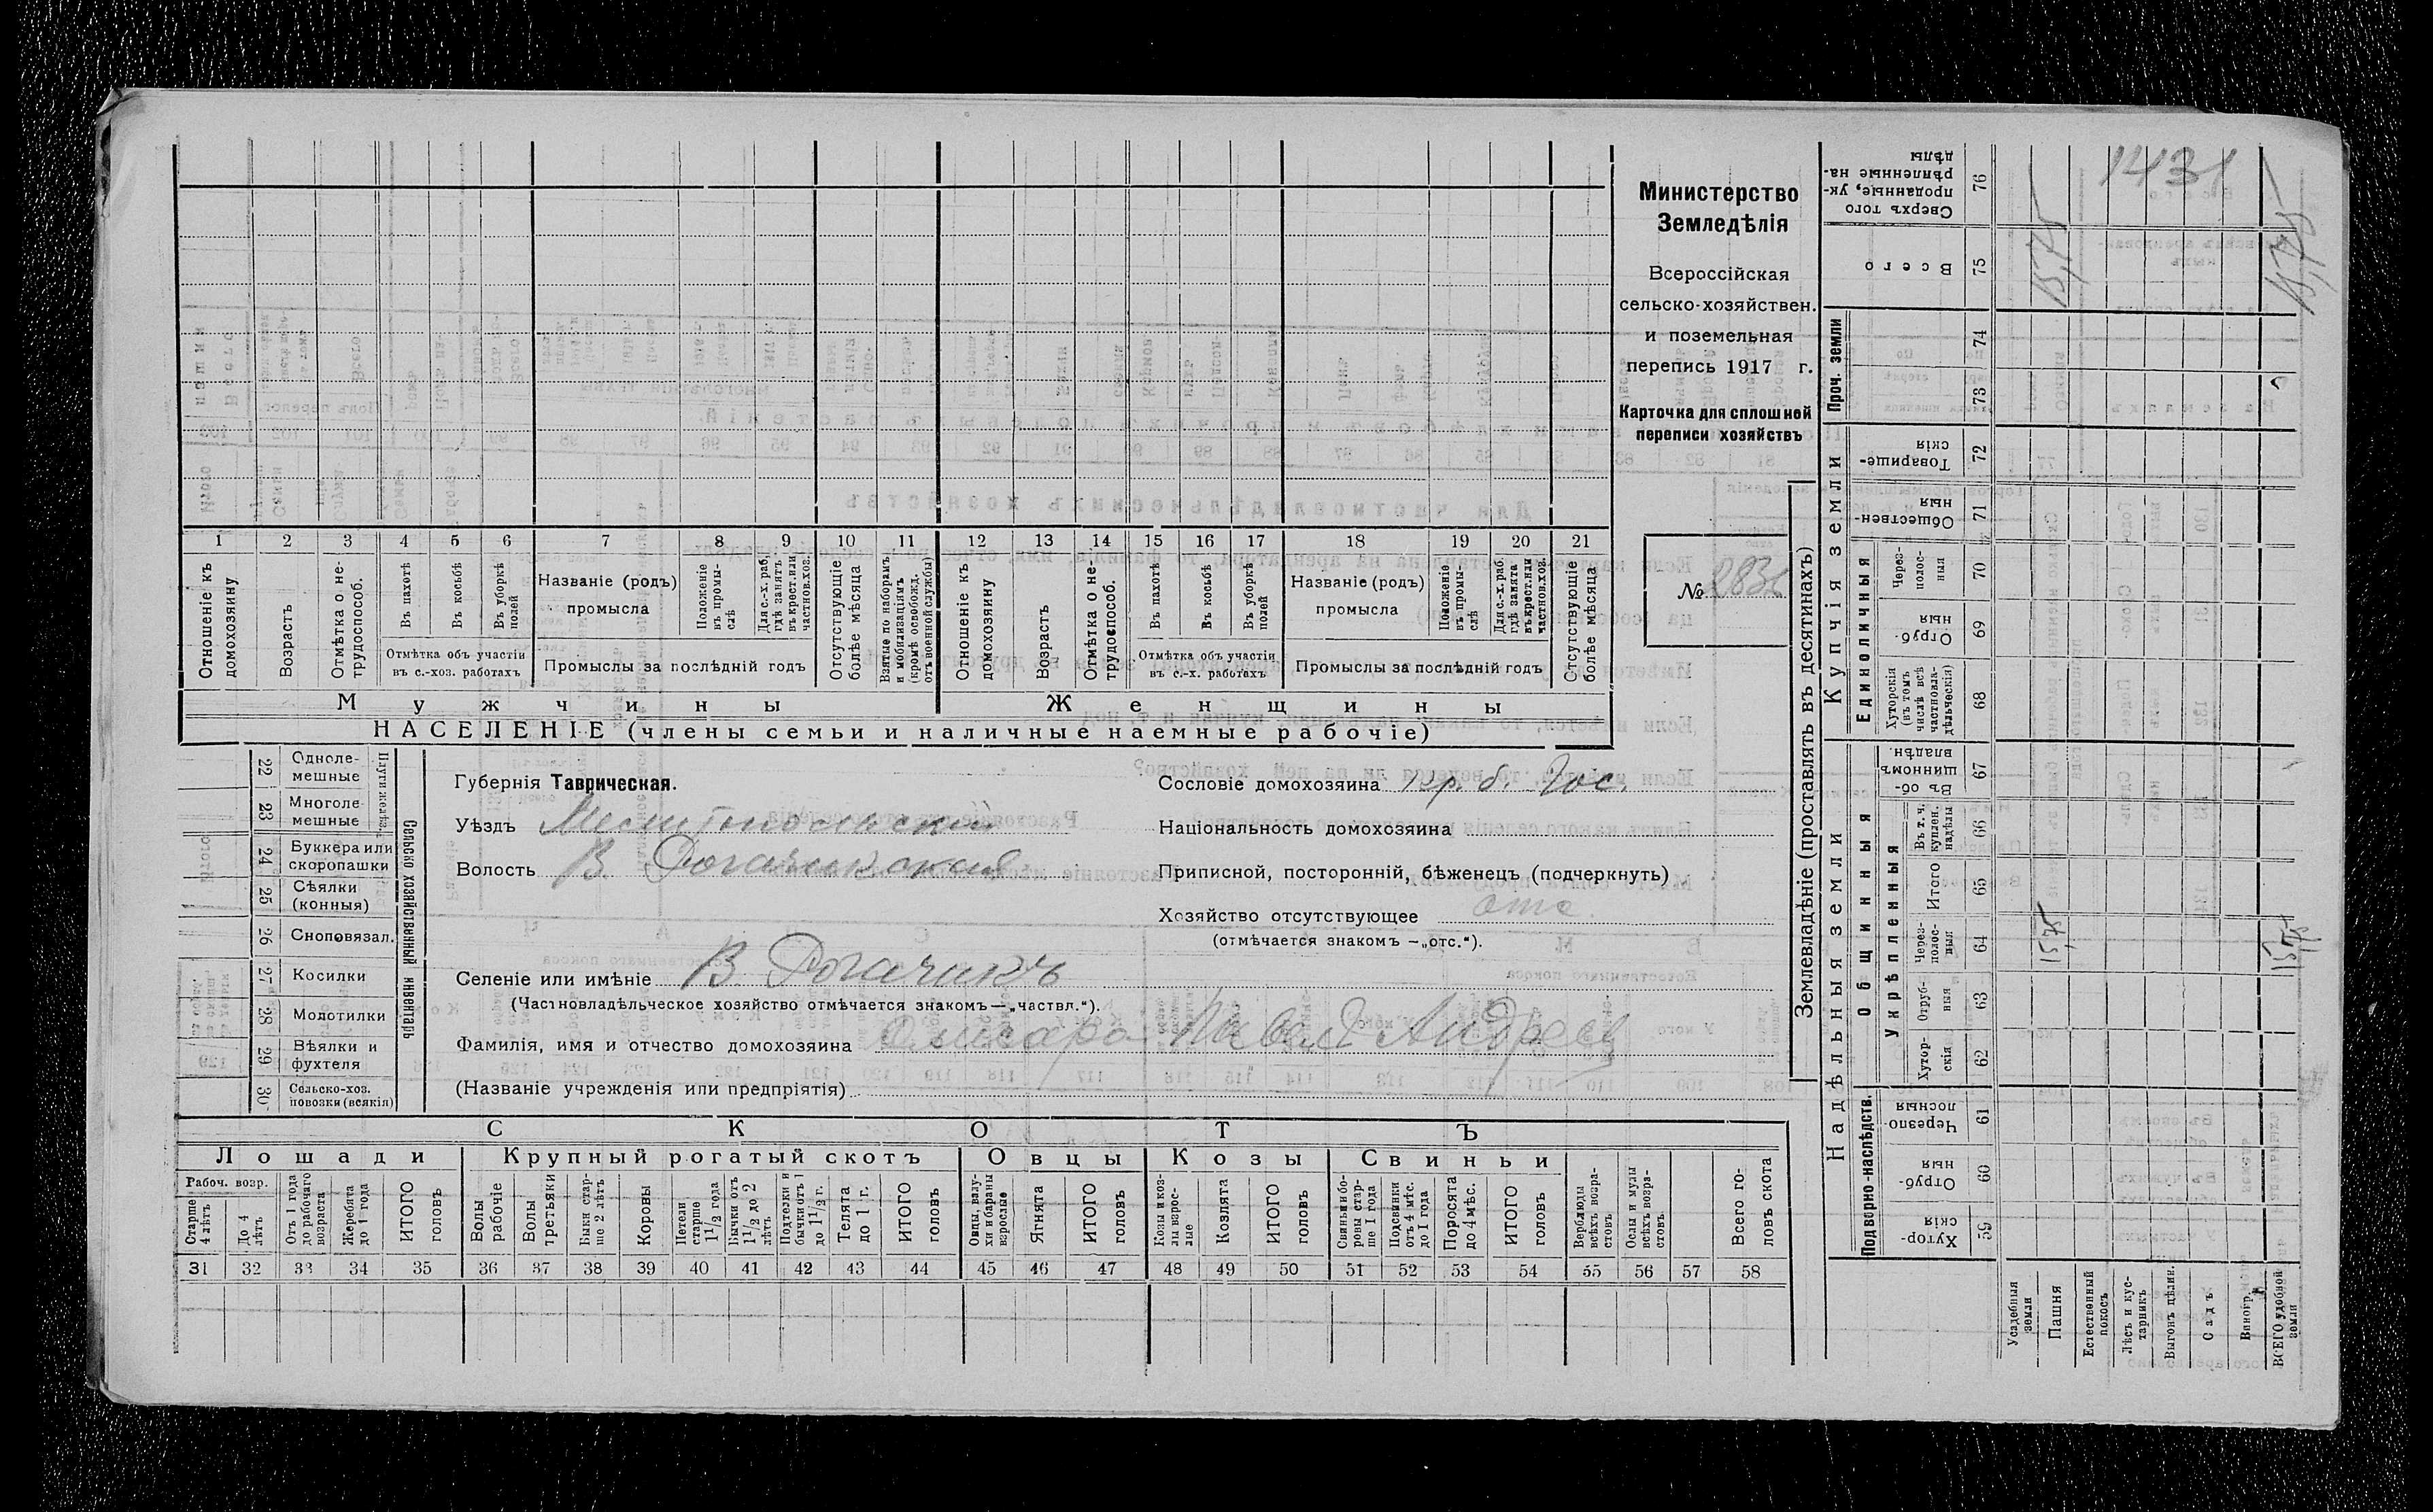 Министерство
Земледѣлія
Всероссійская
сельско-хозяйствен.
и поземельная
перепись 1917 г.
Карточка для сплошной
переписи хозяйствъ
№
1 2 3 4 5 6 7 8 9 10 11 12 13 14 15 16 17 18 19 20 21
Отношеніе къ домохозяину
Возрастъ
Отмѣтка о не-трудоспособ.
Въ пахотѣ
Въ косьбѣ
Въ уборкѣ полей
Отмѣтка объ участіи
въ с.-хоз. работахъ
Названіе (родъ)
промысла
Положеніе въ промы-слѣ
Для с.-х. раб. гдѣ занятъ въ крест. или частнов. хоз.
Промыслы за послѣдній годъ
Отсутствующіе болѣе мѣсяца
Взятые по наборамъ и мобилизаціямъ (кромѣ освобожд. отъ военной службы)
Отношеніе къ домохозяину
Возрастъ
Отмѣтка о не-трудоспособ.
Въ пахотѣ
Въ косьбѣ
Въ уборкѣ полей
Отмѣтка объ участіи
въ с.-х. работахъ
Названіе (родъ)
промысла
Положеніе въ промы-слѣ
Для с.-х. раб. гдѣ занята въ крест. или частнов. хоз.
Промыслы за послѣдній годъ
Отсутствующіе болѣе мѣсяца
Мужчины Женщины
НАСЕЛЕНІЕ (члены семьи и наличные наемные рабочіе)
22 Одноле-мешные
23 Многоле-мешные
Плуги желѣз.
24 Буккера или скоропашки
25 Сѣялки (конныя)
26 Сноповязал.
27 Косилки
28 Молотилки
29 Вѣялки и фухтеля
30 Сельско-хоз. повозки (всякія)
Сельско хозяйственный инвентарь
Губернія Таврическая.
Уѣздъ Мелитопольскій
Волость В. Рогачикская
Селеніе или имѣніе В. Рогачикъ
(Частновладѣльческое хозяйство отмѣчается знакомъ — „частвл.“).
Фамилія, имя и отчество домохозяина Павел Андрее
(Названіе учрежденія или предпріятія)
Сословіе домохозяина кр. б. Гос.
Національность домохозяина
Приписной, посторонній, бѣженецъ (подчеркнуть)
Хозяйство отсутствующее отс.
(отмѣчается знакомъ —„отс.“).
СКОТЪ
Лошади Крупный рогатый скотъ Овцы Козы Свиньи
Рабоч. возр.
Старше 4 лѣтъ
До 4 лѣтъ
Отъ 1 года до рабочаго возраста
Жеребята до 1 года
ИТОГО головъ
Волы рабочіе
Волы третьяки
Быки стар-ше 2 лѣтъ
Коровы
Нетели старше 1 1/2 года
Бычки отъ 1 1/2 до 2 лѣтъ
Подтелки и бычки отъ 1 до 1 1/2 г.
Телята до 1 г.
ИТОГО головъ
Овцы, валу-хи и бараны взрослые
Ягнята
ИТОГО головъ
Козы и коз-лы взрос-лые
Козлята
ИТОГО головъ
Свиньи и бо-ровы стар-ше 1 года
Подсвинки отъ 4 мѣс. до 1 года
Поросята до 4 мѣс.
ИТОГО головъ
Верблюды всѣхъ возра-стовъ
Ослы и мулы всѣхъ возра-стовъ
Всего го-ловъ скота
31 32 33 34 35 36 37 38 39 40 41 42 43 44 45 46 47 48 49 50 51 52 53 54 55 56 57 58
Землевладѣніе (проставлять въ десятинахъ)
Надѣльныя земли Купчія земли Проч. земли
Подворно-наслѣдств.
Общинныя
Укрѣпленныя
Единоличныя
Хутор-скія 59
Отруб-ныя 60
Черезпо-лосныя 61
Хутор-скія 62
Отруб-ныя 63
Через-полос-ныя 64
Итого 65
Въ т. ч. куплен. надѣлы 66
Въ об-щинномъ владѣн. 67
Хуторскія (въ томъ числѣ всѣ частновла-дѣльческія) 68
Отруб-ныя 69
Через-полос-ныя 70
Обществен-ныя 71
Товарище-скія 72
73
74
Всего 75
Сверхъ того проданные, ук-рѣпленные на-дѣлы 76
Усадебныя земли
Пашня 15,75 15,75
Естественный покосъ
Лѣсъ и кус-тарникъ
Выгонъ цѣлин.
Садъ
Виногр.
ВСЕГО удобной земли 15,75 15,75
1431